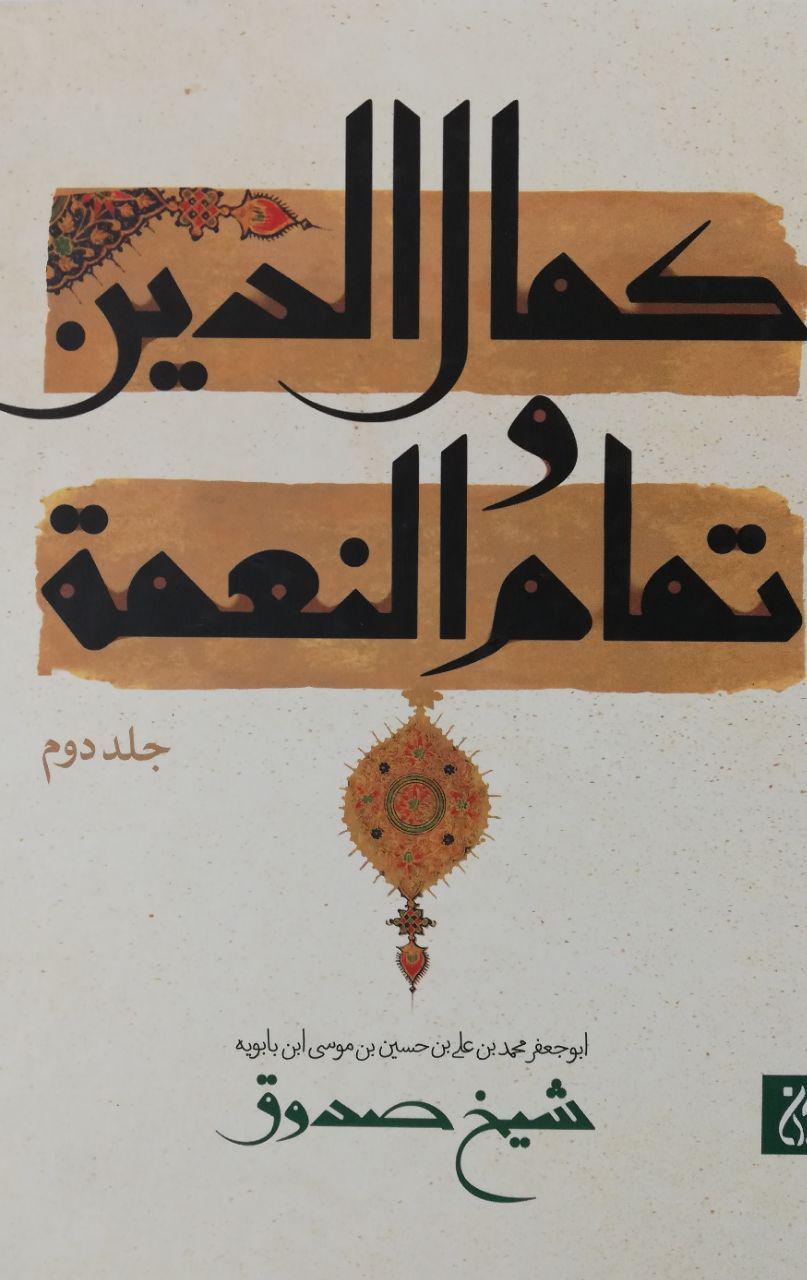 کمال الدین
و
تمام النعمة
جلد دوم
ابوجعفر محمد بن علی بن حسین بن موسی ابن بابویه
شیخ صدوق